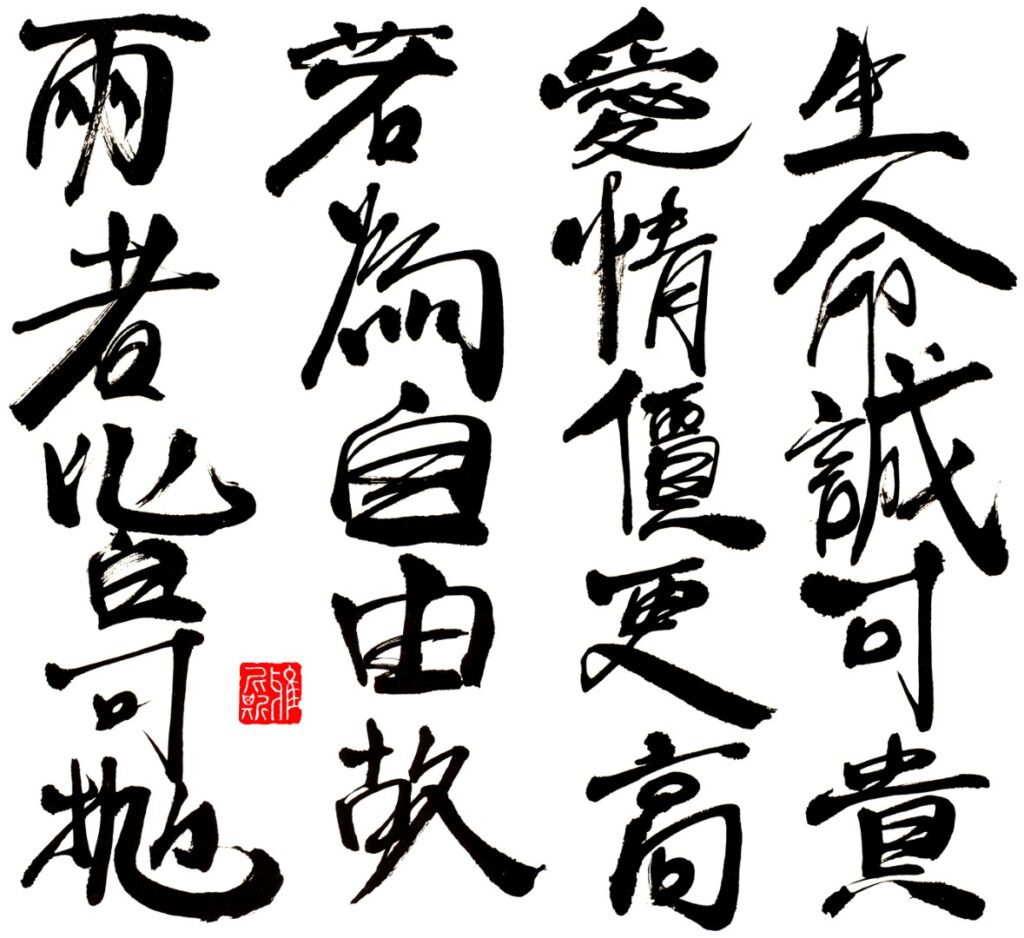 生命誠可貴
愛情價更高
若為自由故
兩者皆可拋